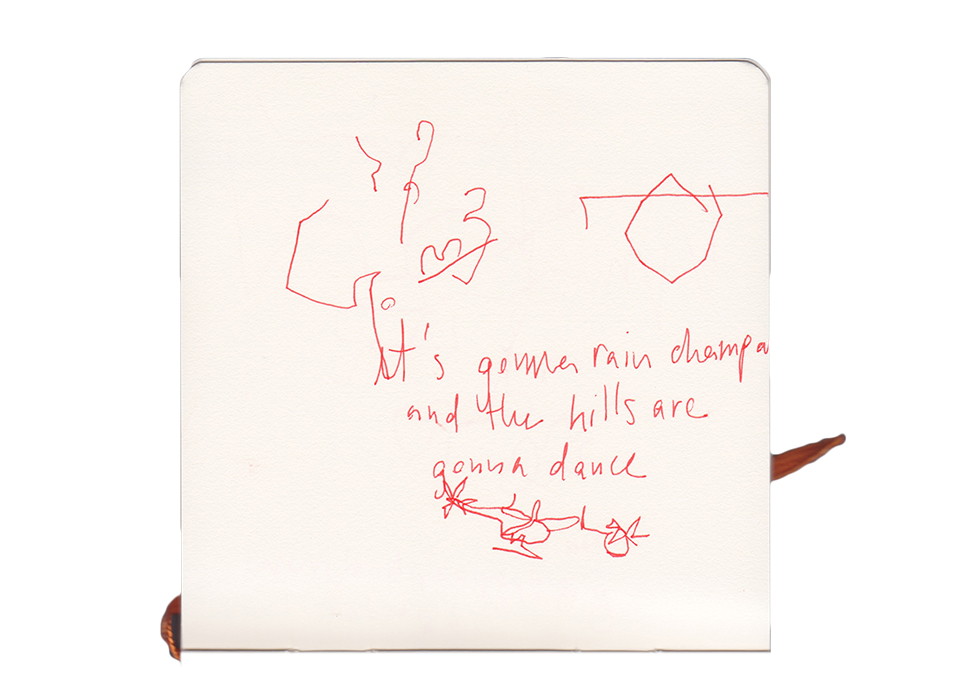 It's gonna rain champa
and the hills are
gonna dance